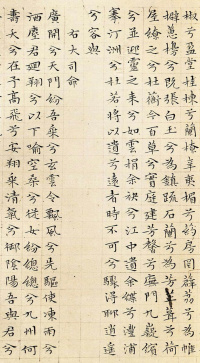 椒兮盈堂桂棟兮蘭橑辛夷楣兮葯房罔薜荔兮為
擗蕙櫋兮既張白玉兮為鎮疏石蘭兮為芳芷葺兮荷
屋繚之兮杜衡合百草兮實庭建芳馨兮廡門九嶷繽
兮並迎靈之來兮如雲捐余袂兮江中遺余褋兮澧浦
搴汀洲兮杜若將以遺兮遠者時不可兮驟得聊逍遙
兮容與
右大司命
廣開兮天門紛吾乘兮玄雲令飄風兮先驅使涷雨兮
洒塵君迴翔兮以下喻空桑兮從女紛總總兮九州何
壽夭兮在予高飛兮安翔乘清氣兮御陰陽吾與君兮